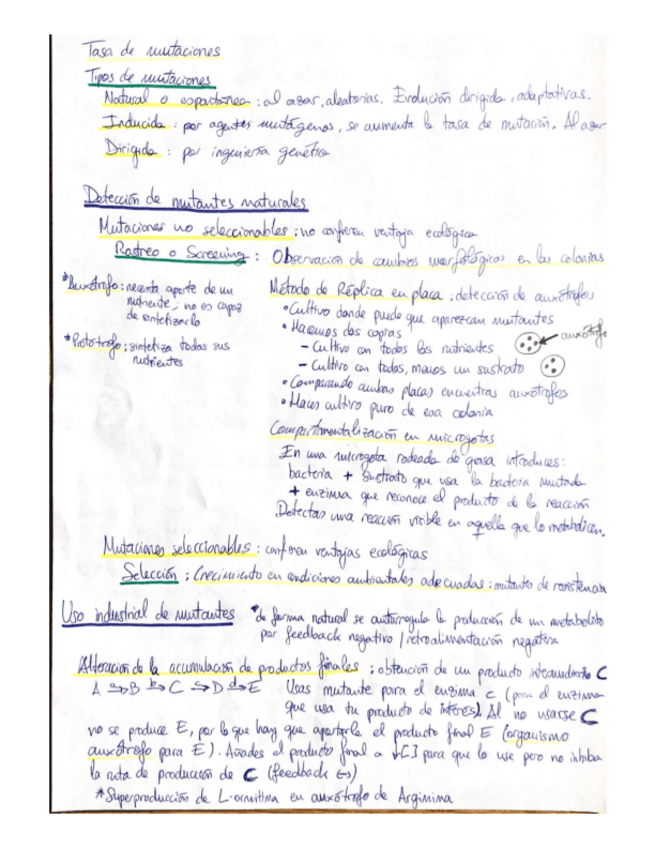 Tasa de mutaciones
Tipos de mutaciones
Natural o espontánea: al azar, aleatorias. Evolución dirigida, adaptativas.
Inducida: por agentes mutágenos, se aumenta la tasa de mutación. Al azar
Dirigida: por ingeniería genética
Detección de mutantes naturales
Mutaciones no seleccionables: no confieren ventaja ecológica
Rastreo o Screening: Observación de cambios morfológicos en las colonias
*Auxótrofo: necesita aporte de un
nutriente; no es capaz
de sintetizarlo
*Prototrofo: sintetiza todos sus
nutrientes
Método de Réplica en placa: detección de auxótrofos
•Cultivo donde puede que aparezcan mutantes
•Hacemos dos copias
- Cultivo con todos los nutrientes
auxótrofo
- Cultivo con todas, menos un sustrato
•Comparando ambas placas encuentras auxótrofos
•Haces cultivo puro de esa colonia
Compartimentalización en microgotas
En una microgota rodeada de grasa introduces:
bacteria + sustrato que usa la bacteria mutada
+ enzima que reconoce el producto de la reacción
Detectas una reacción visible en aquella que lo metabolicen.
Mutaciones seleccionables: confieren ventajas ecológicas
Selección: Crecimiento en condiciones ambientales adecuadas: mutantes de resistencia
Uso industrial de mutantes
*de forma natural se autorregula la producción de un metabolito
por feedback negativo / retroalimentación negativa
Alteración de la acumulación de productos finales: obtención de un producto intermediario C
A a→ B b→ C c→ D d→ E Usas mutante para el enzima c (para el enzima
que usa tu producto de interés). Al no usarse C
no se produce E, por lo que hay que aportarle el producto final E (organismo
auxótrofo para E). Añades el producto final a ↓[ ] para que lo use pero no inhiba
la ruta de producción de C (feedback (-))
*Superproducción de L-ornitina en auxótrofo de Arginina